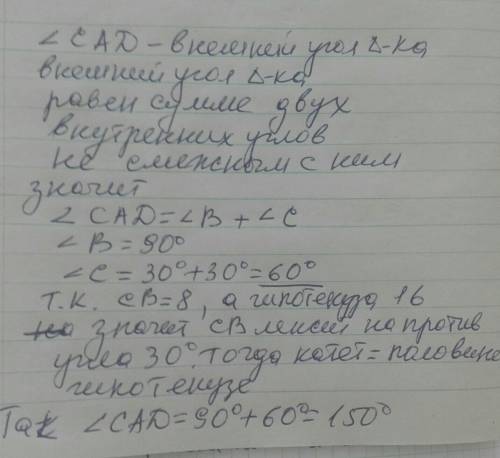 ∠CAD - внешний угол Δ-ка,
внешний угол Δ-ка
равен сумме двух
внутренних углов
не смежным с ним
значит
∠CAD=∠B + ∠C
∠B = 90°
∠C = 30°+30°=60°
т.к. CB=8, а гипотенуза 16
значит CB лежит на против
угла 30°. тогда катет = половине
гипотенузе
Так ∠CAD=90°+60°=150°